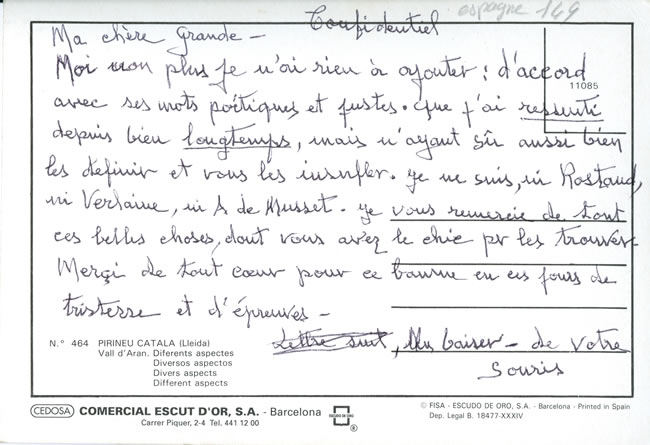 espagne 149
Confidentiel
Ma chère Grande -
Moi non plus je n'ai rien à ajouter : d'accord
11085
avec ses mots poétiques et justes. que j'ai ressenti
depuis bien longtemps, mais n'ayant sû aussi bien
les definir et vous les insufler. Je ne suis, ni Rostand,
ni Verlaine, ni A de Musset. Je vous remercie de tout
ces belles choses, dont vous avez le chic pr les trouver
Merçi de tout cœur pour ce baume en ces jours de
tristesse et d'épreuves -
Lettre suit, Un baiser - de votre
Souris
N.° 464 PIRINEU CATALA (Lleida)
Vall d'Aran. Diferents aspectes
Diversos aspectos
Divers aspects
Different aspects
CEDOSA COMERCIAL ESCUT D'OR, S.A. - Barcelona
Carrer Piquer, 2-4 Tel. 441 12 00
ESCUDO DE ORO
®
© FISA - ESCUDO DE ORO, S.A. - Barcelona - Printed in Spain
Dep. Legal B. 18477-XXXIV